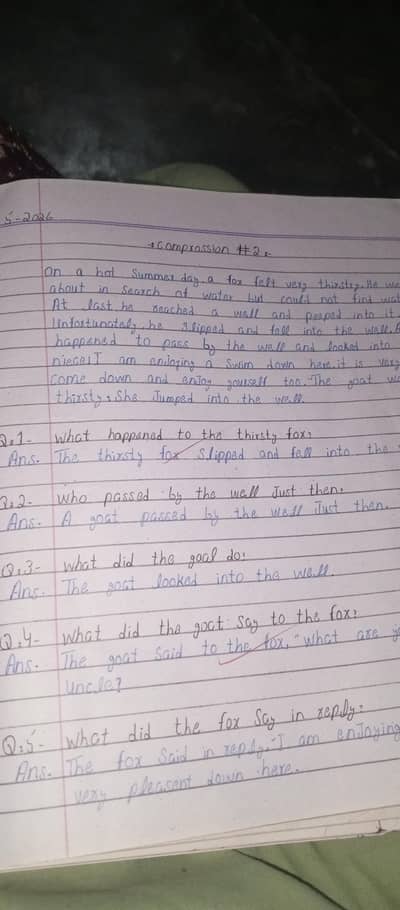 5-2026
Comprassion #2
On a hot Summer day a fox felt very thirsty. He
about in search of water but could not find
At last he reached a well and peeped into it
Unfortunately, he slipped and fell into the well.
happened to pass by the well and looked into
niece I am enjoying a swim down here. it is very
come down and enjoy yourself too. The goat
thirsty. She Jumped into the well.
Q.1- What happened to the thirsty fox?
Ans. The thirsty fox slipped and fell into the
Q.2- Who passed by the well Just then.
Ans. A goat passed by the well Just then.
Q.3- What did the goal do?
Ans. The goat looked into the well.
Q.4- What did the goat say to the fox?
Ans. The goat said to the fox, "What are
Uncle?
Q.5- What did the fox say in reply?
Ans. The fox said in reply, I am enjoying
very pleasent down here.